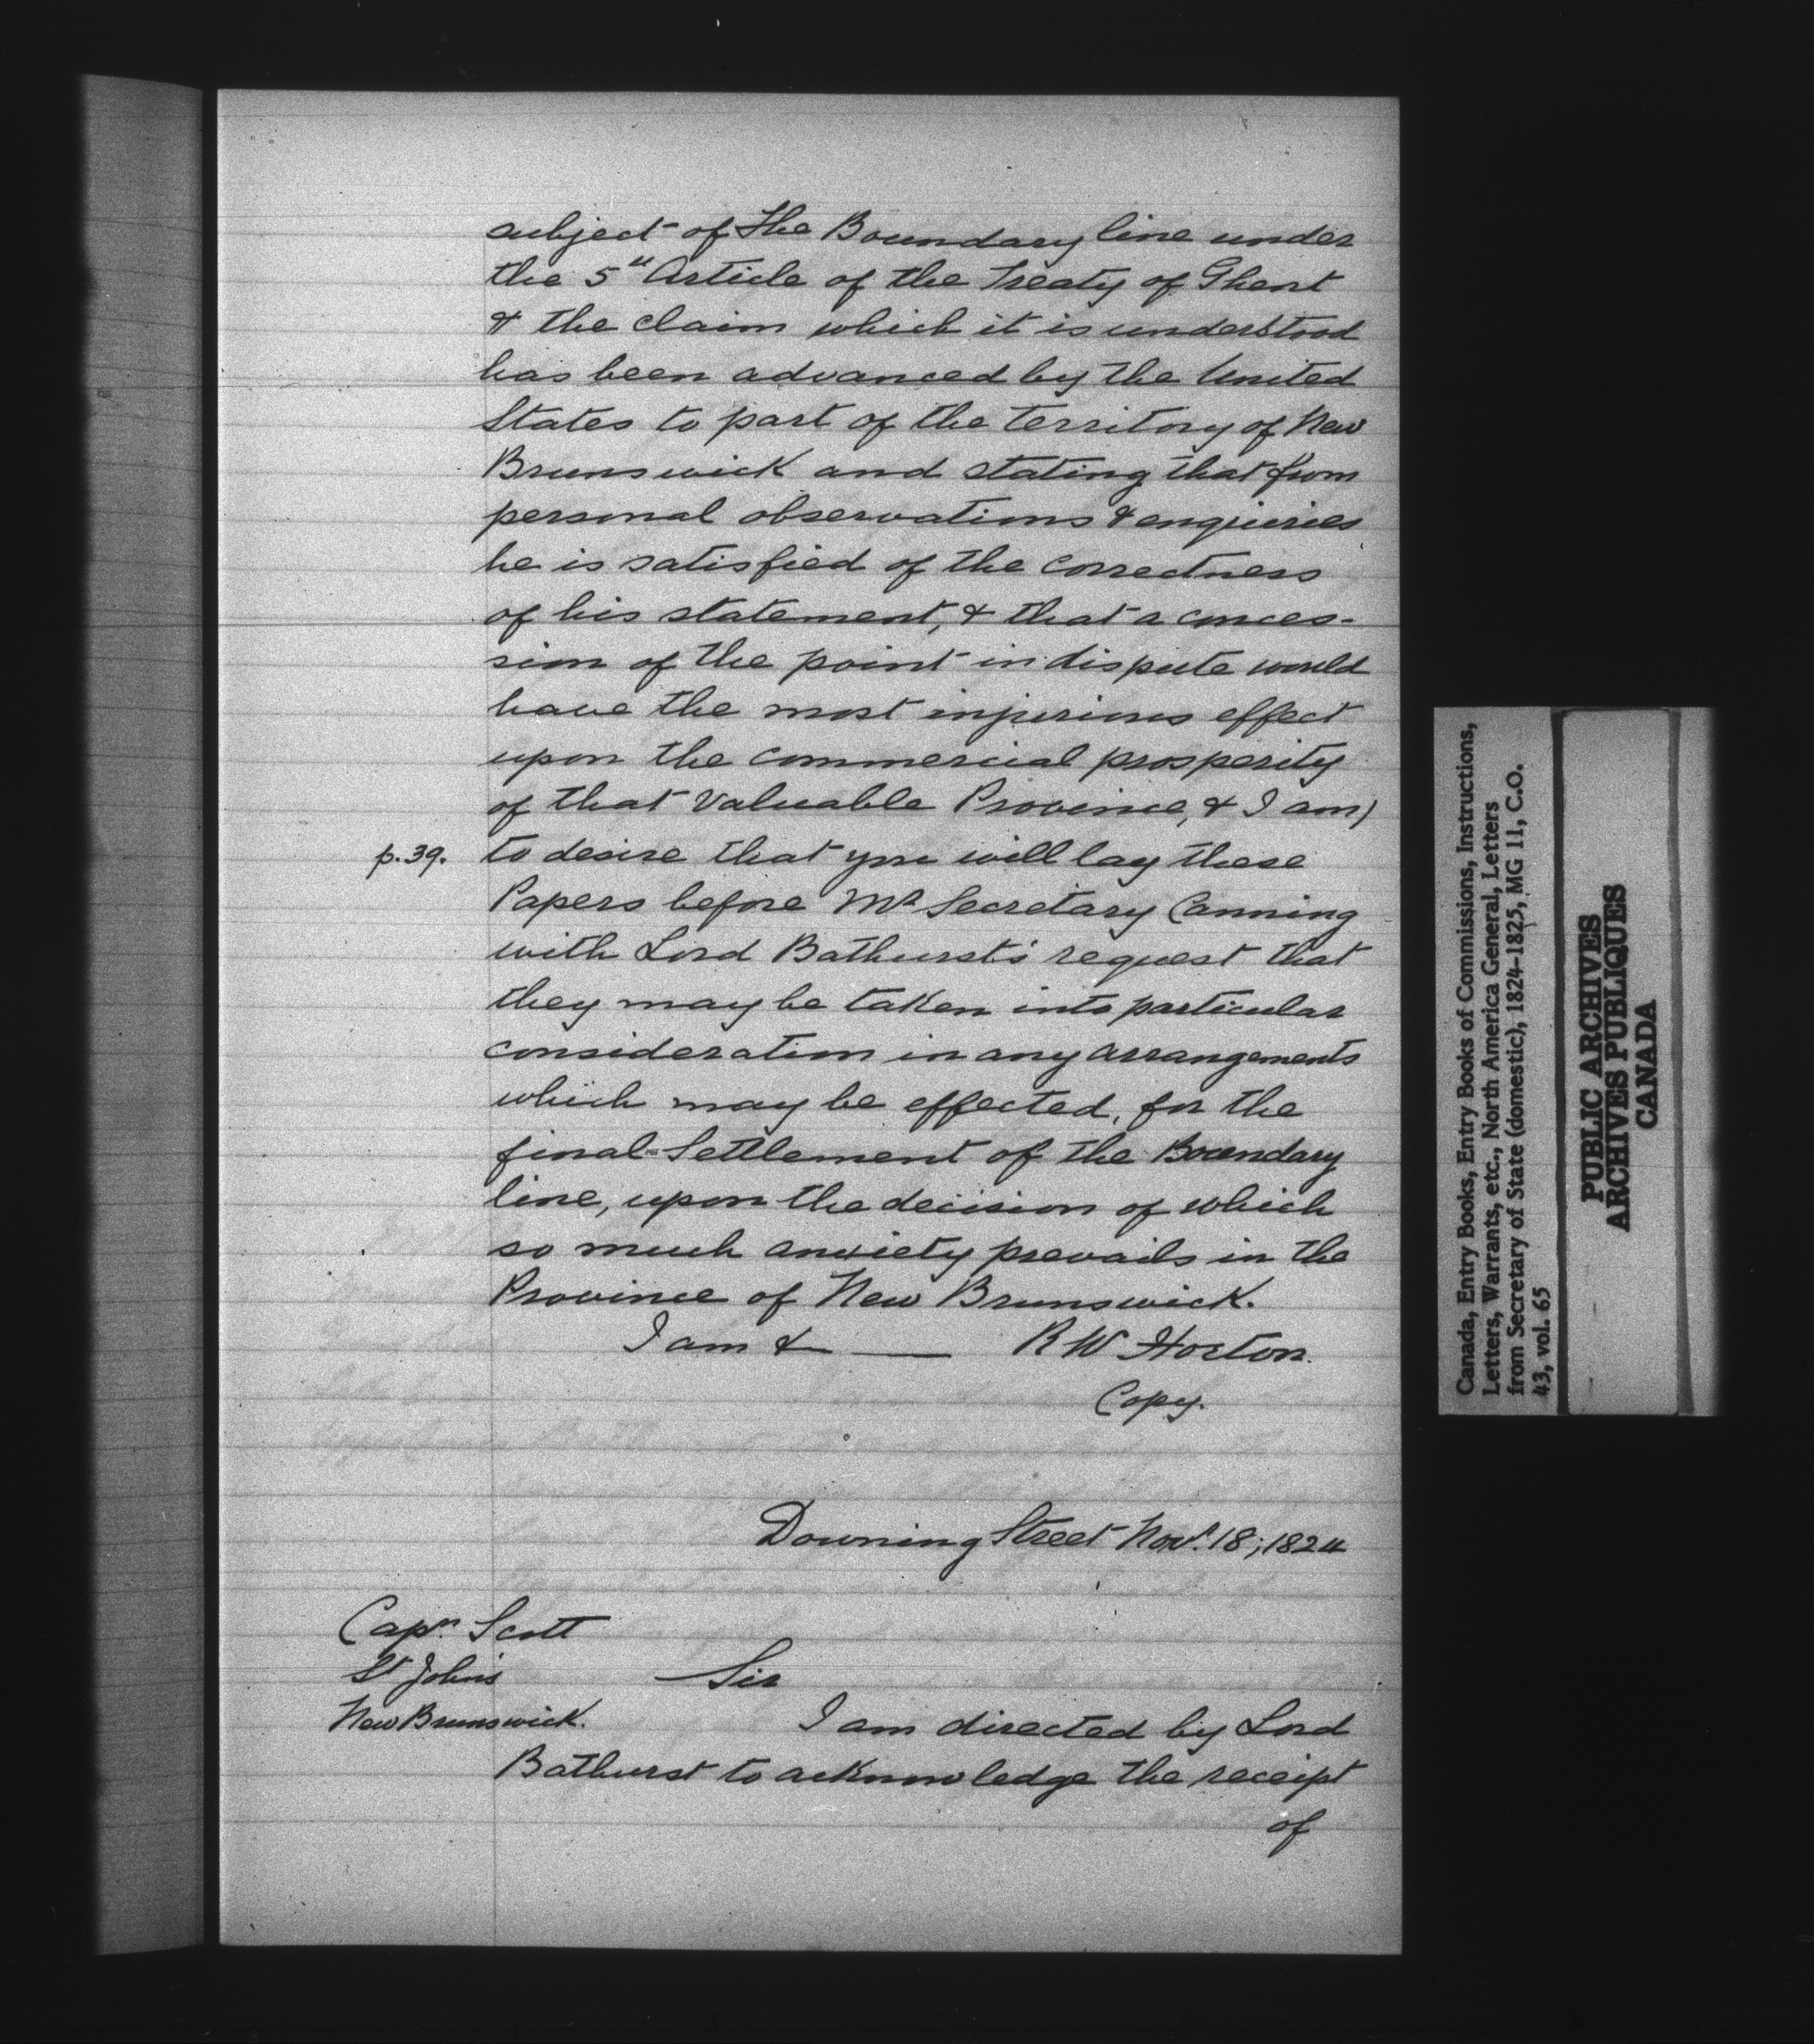 subject of the Boundary line under
the 5th Article of the Treaty of Ghent
& the claim which it is understood
has been advanced by the United
States to part of the territory of New
Brunswick and stating that from
personal observations & enquiries
he is satisfied of the correctness
of his statement, & that a conces-
sion of the point in dispute would
have the most injurious effect
upon the commercial prosperity
of that valuable Province, & I am)
p.39. to desire that you will lay these
Papers before Mr Secretary Canning
with Lord Bathurst's request that
they may be taken into particular
consideration in any arrangements
which may be effected, for the
final Settlement of the Boundary
line, upon the decision of which
so much anxiety prevails in the
Province of New Brunswick.
I am & — R W Horton.
Copy.
Downing Street Novr. 18, 1824
Capn. Scott
St John's
New Brunswick.
Sir
I am directed by Lord
Bathurst to acknowledge the receipt
of
Canada, Entry Books, Entry Books of Commissions, Instructions,
Letters, Warrants, etc., North America General, Letters
from Secretary of State (domestic), 1824-1825, MG 11, C.O.
43, vol. 65
PUBLIC ARCHIVES
ARCHIVES PUBLIQUES
CANADA